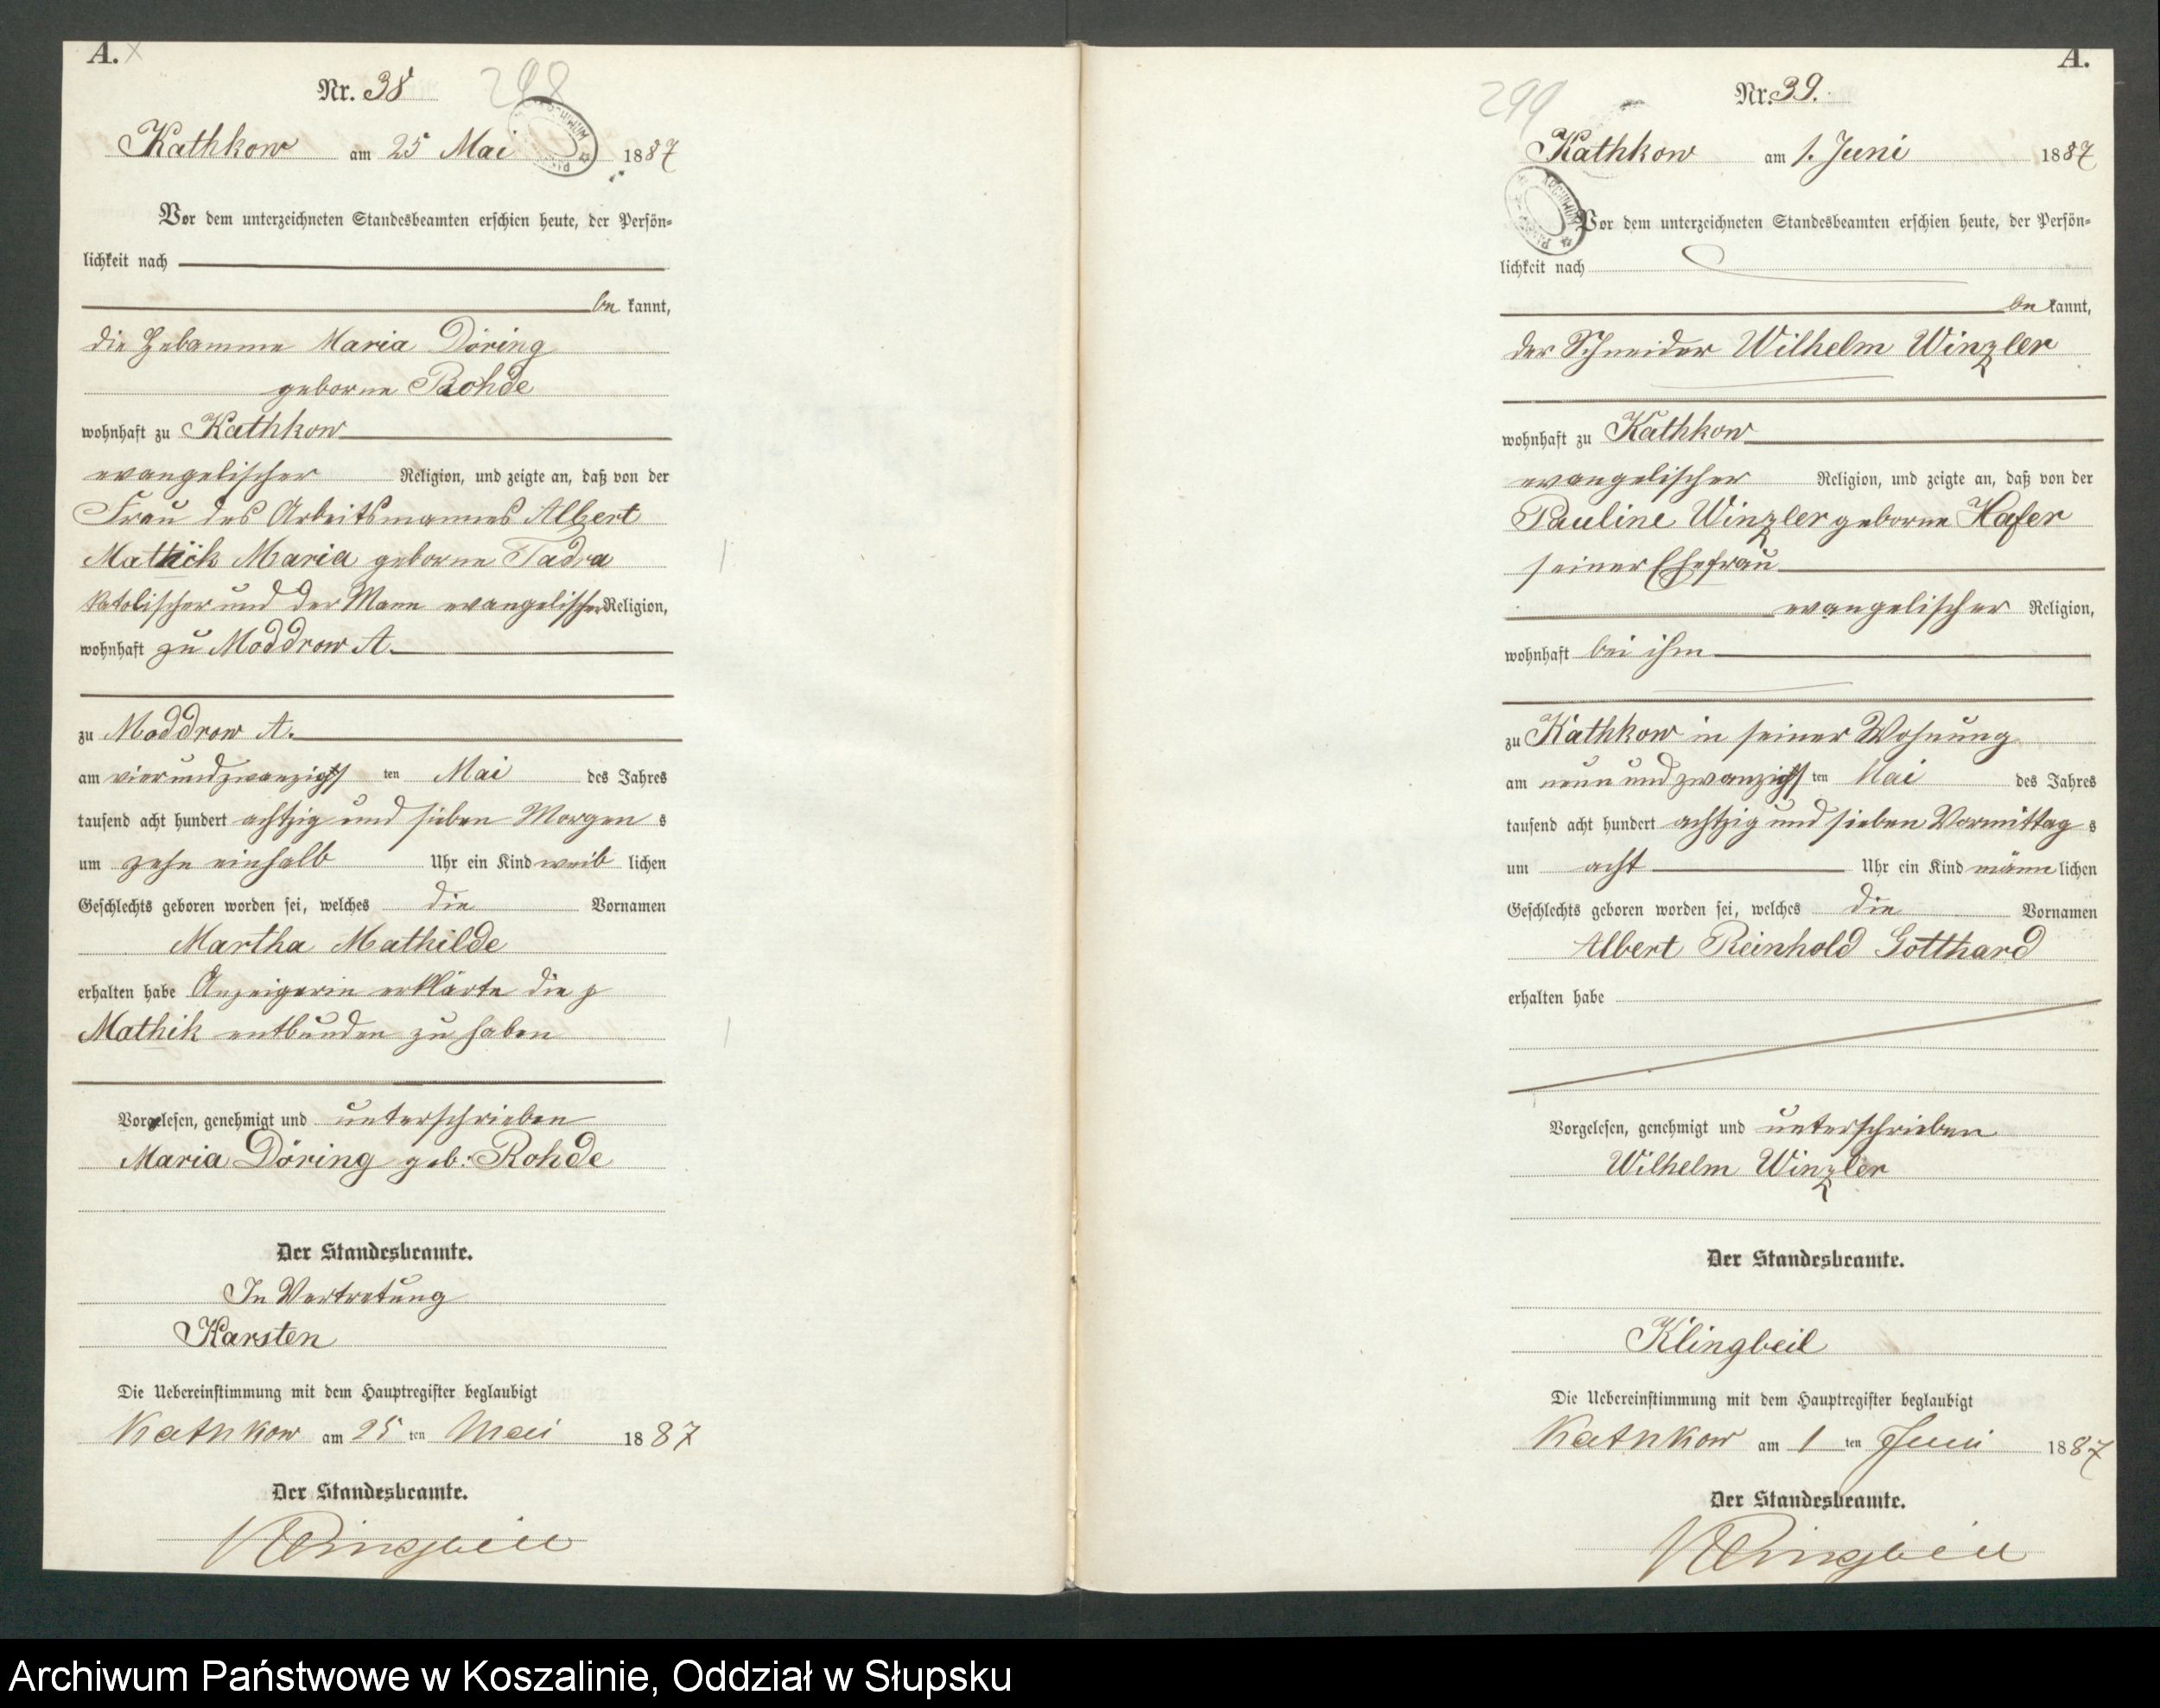 A.
Nr. 38
298
Kathkow am 25 Mai 1887
Vor dem unterzeichneten Standesbeamten erschien heute, der Persön-
lichkeit nach
be kannt,
die Hebamme Maria Döring
geborne Rohde
wohnhaft zu Kathkow
evangelischer Religion, und zeigte an, daß von der
Frau des Arbeitsmannes Albert
Mathik Maria geborne
katolischer und der Mann evangelischer Religion,
wohnhaft zu Moddrow A.
zu Moddrow A.
am vierundzwanzigst ten Mai des Jahres
tausend acht hundert achtzig und sieben Morgen s
um zehn einhalb Uhr ein Kind weib lichen
Geschlechts geboren worden sei, welches die Vornamen
Martha Mathilde
erhalten habe Anzeigerin erklärte die p
Mathik entbunden zu haben
Vorgelesen, genehmigt und unterschrieben
Maria Döring geb. Rohde
Der Standesbeamte.
In Vertretung
Karsten
Die Uebereinstimmung mit dem Hauptregister beglaubigt
Kathkow am 25 ten Mai 1887
Der Standesbeamte.
Klingbeil
A.
Nr. 39.
299
Kathkow am 1. Juni 1887
ARCHIWUM
Vor dem unterzeichneten Standesbeamten erschien heute, der Persön-
lichkeit nach
be kannt,
der Schneider Wilhelm Winzler
wohnhaft zu Kathkow
evangelischer Religion, und zeigte an, daß von der
Pauline Winzler geborne Hafer
seiner Ehefrau
evangelischer Religion,
wohnhaft bei ihm
zu Kathkow in seiner Wohnung
am neun und zwanzigst ten Mai des Jahres
tausend acht hundert achtzig und sieben Vormittag s
um acht Uhr ein Kind männ lichen
Geschlechts geboren worden sei, welches die Vornamen
Albert Reinhold Gotthard
erhalten habe
Vorgelesen, genehmigt und unterschrieben
Wilhelm Winzler
Der Standesbeamte.
Klingbeil
Die Uebereinstimmung mit dem Hauptregister beglaubigt
Kathkow am 1 ten Juni 1887
Der Standesbeamte.
Klingbeil
Archiwum Państwowe w Koszalinie, Oddział w Słupsku